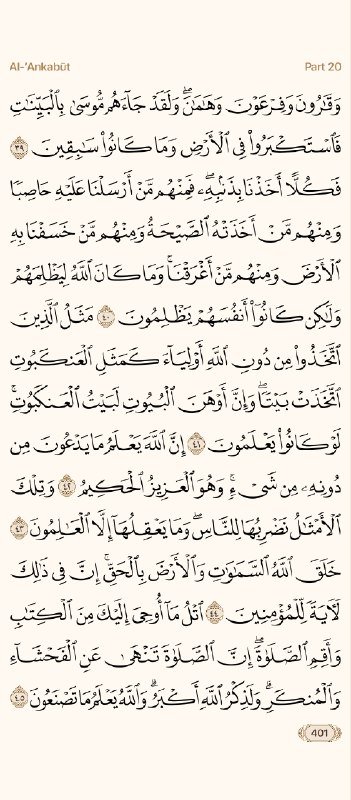 Al-'Ankabūt
Part 20
وَقَٰرُونَ وَفِرْعَوْنَ وَهَٰمَٰنَ ۖ وَلَقَدْ جَآءَهُم مُّوسَىٰ بِٱلْبَيِّنَٰتِ
فَٱسْتَكْبَرُوا۟ فِى ٱلْأَرْضِ وَمَا كَانُوا۟ سَٰبِقِينَ ٣٩
فَكُلًّا أَخَذْنَا بِذَنۢبِهِۦ ۖ فَمِنْهُم مَّنْ أَرْسَلْنَا عَلَيْهِ حَاصِبًا
وَمِنْهُم مَّنْ أَخَذَتْهُ ٱلصَّيْحَةُ وَمِنْهُم مَّنْ خَسَفْنَا بِهِ
ٱلْأَرْضَ وَمِنْهُم مَّنْ أَغْرَقْنَا ۚ وَمَا كَانَ ٱللَّهُ لِيَظْلِمَهُمْ
وَلَٰكِن كَانُوٓا۟ أَنفُسَهُمْ يَظْلِمُونَ ٤٠ مَثَلُ ٱلَّذِينَ
ٱتَّخَذُوا۟ مِن دُونِ ٱللَّهِ أَوْلِيَآءَ كَمَثَلِ ٱلْعَنكَبُوتِ
ٱتَّخَذَتْ بَيْتًا ۖ وَإِنَّ أَوْهَنَ ٱلْبُيُوتِ لَبَيْتُ ٱلْعَنكَبُوتِ ۖ
لَوْ كَانُوا۟ يَعْلَمُونَ ٤١ إِنَّ ٱللَّهَ يَعْلَمُ مَا يَدْعُونَ مِن
دُونِهِۦ مِن شَىْءٍ ۚ وَهُوَ ٱلْعَزِيزُ ٱلْحَكِيمُ ٤٢ وَتِلْكَ
ٱلْأَمْثَٰلُ نَضْرِبُهَا لِلنَّاسِ ۖ وَمَا يَعْقِلُهَآ إِلَّا ٱلْعَٰلِمُونَ ٤٣
خَلَقَ ٱللَّهُ ٱلسَّمَٰوَٰتِ وَٱلْأَرْضَ بِٱلْحَقِّ ۚ إِنَّ فِى ذَٰلِكَ
لَءَايَةً لِّلْمُؤْمِنِينَ ٤٤ ٱتْلُ مَآ أُوحِىَ إِلَيْكَ مِنَ ٱلْكِتَٰبِ
وَأَقِمِ ٱلصَّلَوٰةَ ۖ إِنَّ ٱلصَّلَوٰةَ تَنْهَىٰ عَنِ ٱلْفَحْشَآءِ
وَٱلْمُنكَرِ ۗ وَلَذِكْرُ ٱللَّهِ أَكْبَرُ ۗ وَٱللَّهُ يَعْلَمُ مَا تَصْنَعُونَ ٤٥
401